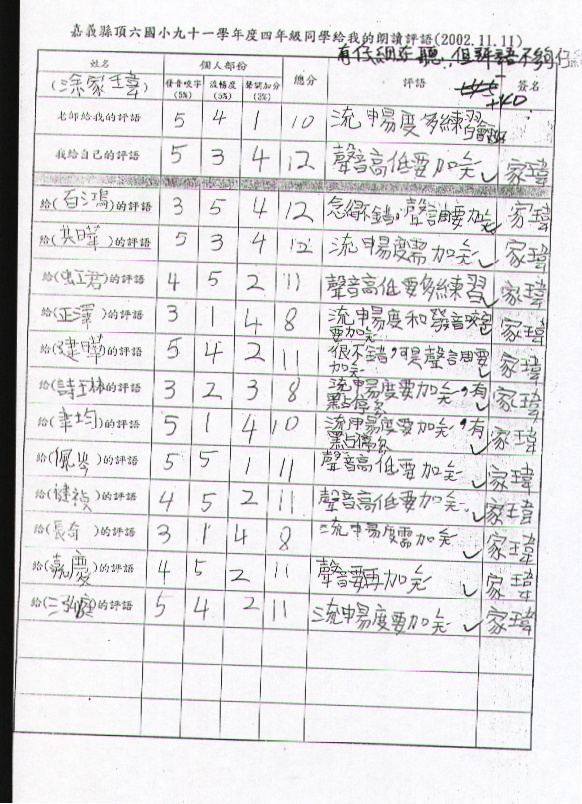 嘉義縣頂六國小九十一學年度四年級同學給我的朗讀評語(2002.11.11)
有仔細在聽，但評語不夠仔
姓名 個人部份 總分 評語 簽名
(涂家瑋) 發音咬字(5%) 流暢度(5%) 聲調加分(3%) +40
老師給我的評語 5 4 1 10 流暢度多練習會更好
我給自己的評語 5 3 4 12 聲音高低要加矣 家瑋
給(百鴻)的評語 3 5 4 12 念得不錯，聲調要加矣 家瑋
給(英曄)的評語 5 3 4 12 流暢度需加矣 家瑋
給(虹君)的評語 4 5 2 11 聲音高低要多練習 家瑋
給(正澤)的評語 3 1 4 8 流暢度和發音咬
要加矣 家瑋
給(建曄)的評語 5 4 2 11 很不錯，可是聲調要
加矣 家瑋
給(詩)的評語 3 2 3 8 流暢度要加矣，有
點停 家瑋
給(韋均)的評語 5 1 4 10 流暢度要加矣，有
點 家瑋
給(佩岑)的評語 5 5 1 11 聲音高低要加矣 家瑋
給(健禎)的評語 4 5 2 11 聲音高低要加矣 家瑋
給(長奇)的評語 3 1 4 8 流暢度需加矣 家瑋
給(嘉慶)的評語 4 5 2 11 聲音要再加矣 家瑋
給()的評語 5 4 2 11 流暢度要加矣 家瑋